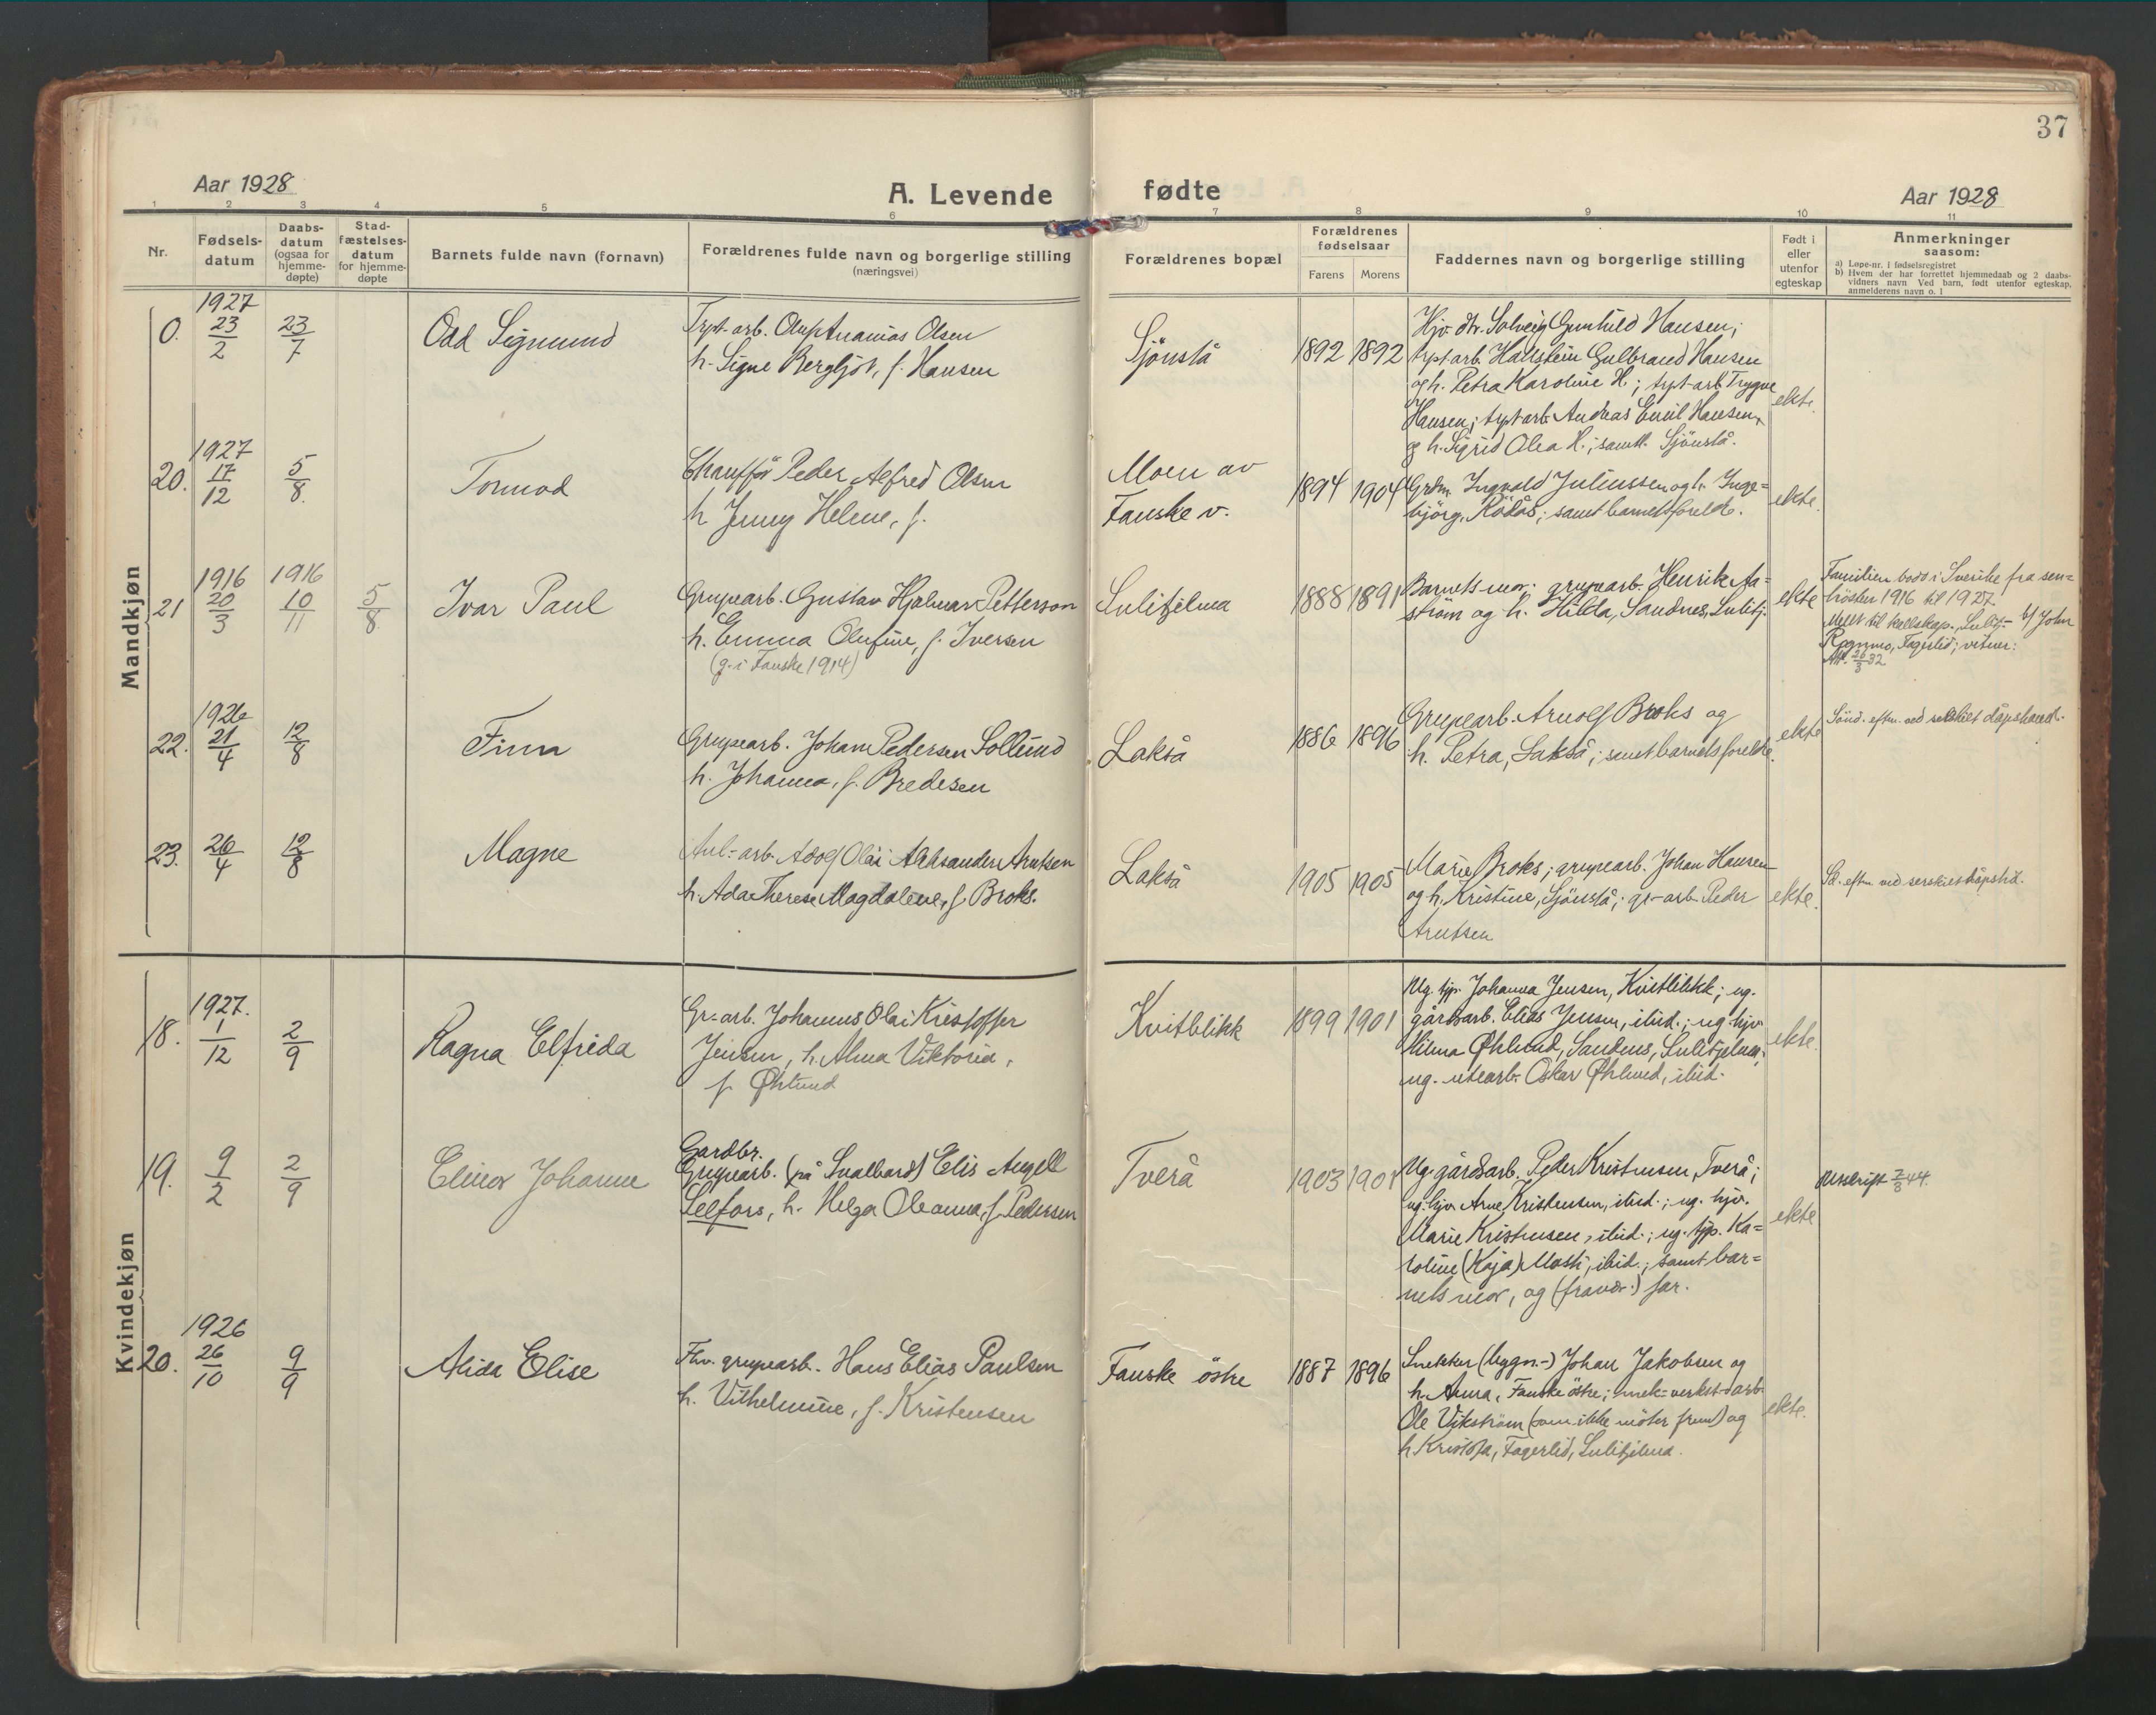 37
Aar 1928
A. Levende fødte
Aar 1928
1 2 3 4 5 6 7 8 9 10 11
Nr.
Fødsels-
datum
Daabs-
datum
(ogsaa for
hjemme-
døpte)
Stad-
fæstelses-
datum
for hjemme-
døpte
Barnets fulde navn (fornavn)
Forældrenes fulde navn og borgerlige stilling
(næringsvei)
Forældrenes bopæl
Forældrenes
fødselsaar
Farens Morens
Faddernes navn og borgerlige stilling
Født i
eller
utenfor
egteskap
Anmerkninger
saasom:
a) Løpe-nr. i fødselsregistret
b) Hvem der har forrettet hjemmedaab og 2 daabs-
vidners navn Ved barn, født utenfor egteskap,
anmelderens navn o. l
Mandkjøn
0. 1927 23/2 23/7 Odd Sigmund
Trpt-arb. Oluf Ananias Olsen
h. Signe Bergljot, f. Hansen
Sjönstå 1892 1892
Hjv. dtr. Solveig Gunhild Hansen;
trpt arb. Hallstein Gulbrand Hansen
og h. Petra Karoline H.; trpt-arb. Trygve
Hansen; trpt arb. Andreas Emil Hansen
og h. Sigrid Olea H.; samtl. Sjönstå.
ekte.
20. 1927 17/12 5/8. Tormod
Chauffør Peder Alfred Olsen
h. Jenny Helene, f.
Moen av
Fauske v.
1894 1904
Grdm. Ingvald Juliussen og h. Inge=
björg, Rödås; samt barnets foreldr.
ekte.
21 1916 20/3 1916 10/11 5/8 Ivar Paul
Grupearb. Gustav Hjalmar Petterson
h. Emma Olufine, f. Iversen
(g. i Fauske 1914)
Sulitjelma 1888 1891
Barnets mor; grupearb. Henrik Aa=
ström og h. Hilda, Sandnes, Sulitj.
ekte
Familien bodd i Sverike fra sen=
hösten 1916 til 1927.
Meldt til kallskap., Sulitj.- v/ John
Rognmo, Fagerlid; vitner:
Att. 26/3 32
22. 1926 21/4 12/8 Finn
Grupearb. Johan Pedersen Sollund
h. Johanna, f. Bredesen
Lakså 1886 1896
Grupearb. Arnolf Broks og
h. Petra, Lakså; samt barnets foreldr.
ekte
Sönd. eftm. ved serskilt dåpshandl.
23. 26/4 12/8 Magne
Anl.-arb. Adolf Olai Aleksander Arntsen
h. Ada Therese Magdalene, f. Broks.
Lakså 1905 1905
Marie Broks; grupearb. Johan Hansen
og h. Kristine, Sjönstå; gr-arb. Peder
Arntsen
ekte.
Sd. eftm. ved serskilt dåpshd.
Kvindekjøn
18. 1927. 1/12 2/9 Ragna Elfrida
Gr-arb. Johannes Olai Kristoffer
Jensen, h. Alma Viktoria,
f. Øhlund
Kvitblikk 1899 1901
Ug. tjp. Johanna Jensen, Kvitblikk; ug.
gårdsarb. Elias Jensen, ibid.; ug. hjv.
Hilma Øhlund, Sandnes, Sulitjelma;
ug. utearb. Oskar Øhlund, ibid.
ekte.
19. 9/2 2/9 Elinor Johanne
Gardbr.
Grupearb. (på Svalbard) Elis Angell
Selfors, h. Helga Oleanna, f. Pedersen
Tverå 1903 1901
Ug. gårdsarb. Peder Kristensen, Tverå;
ug. hjv. Arne Kristensen, ibid.; ug. hjv.
Marie Kristensen, ibid.; ug. tjp. Ka=
roline (Kaja) Mosti, ibid.; samt bar=
nets mor, og (fravær.) far.
ekte
Utskrift 7/3 44.
20. 1926 26/10 9/9 Alida Elise
Fhv. grupearb. Hans Elias Paulsen
h. Vilhelmine, f. Kristensen
Fauske östre 1887 1896
Snekker (bygn.-) Johan Jakobsen og
h. Anna, Fauske östre; mek-verkst-arb.
Ole Vikström (som ikke möter frem) og
h. Kristofa, Fagerlid, Sulitjelma.
ekte.